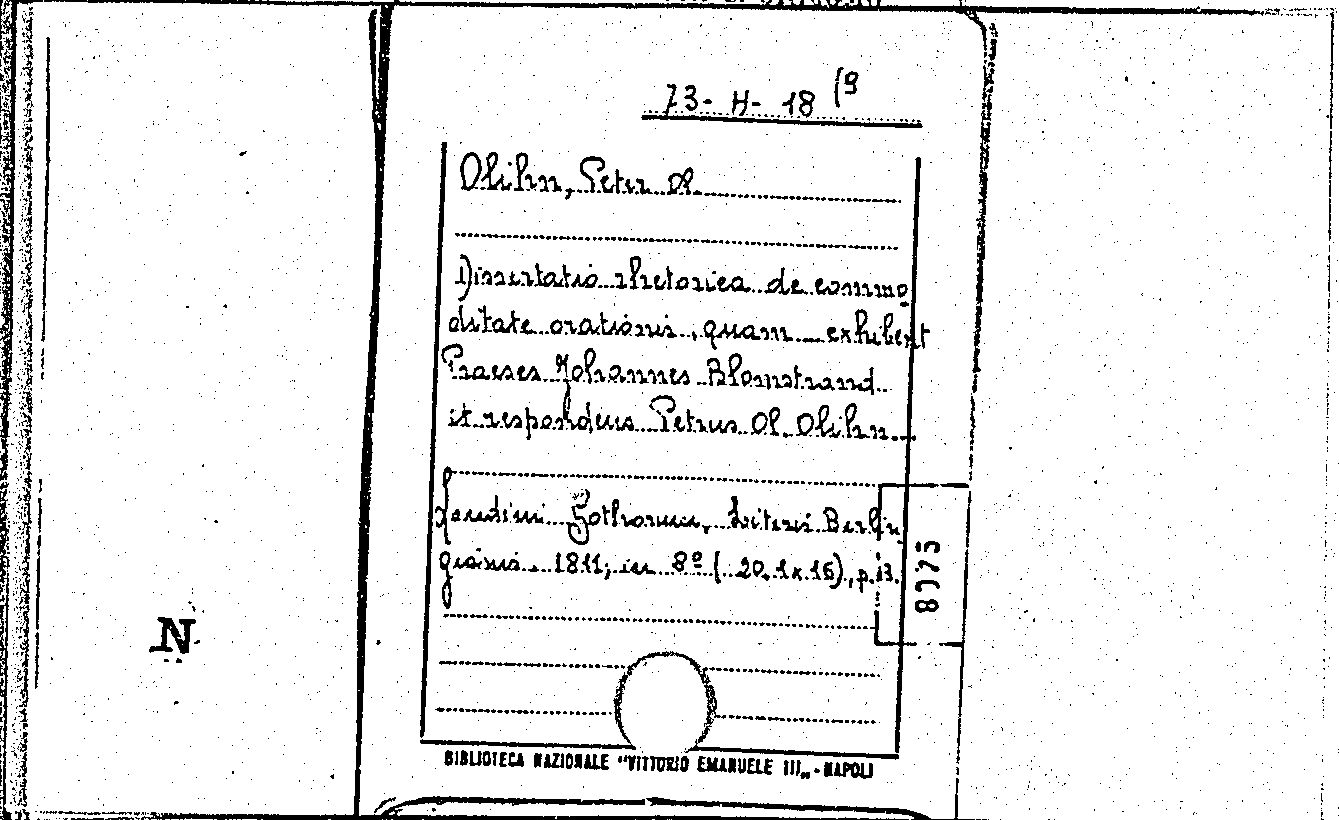 73-H-18 (9
Olihn, Peter Ol.
Dissertatio rhetorica de commo
ditate orationis, quam exhibent
Praeses Johannes Blomstrand
et respondens Petrus Ol. Olihn
Londini Gothorum, Literis Berlin
gianis. 1811, in 8º (20.1x16), p.13.
8075
N
BIBLIOTECA NAZIONALE "VITTORIO EMANUELE III„ - NAPOLI